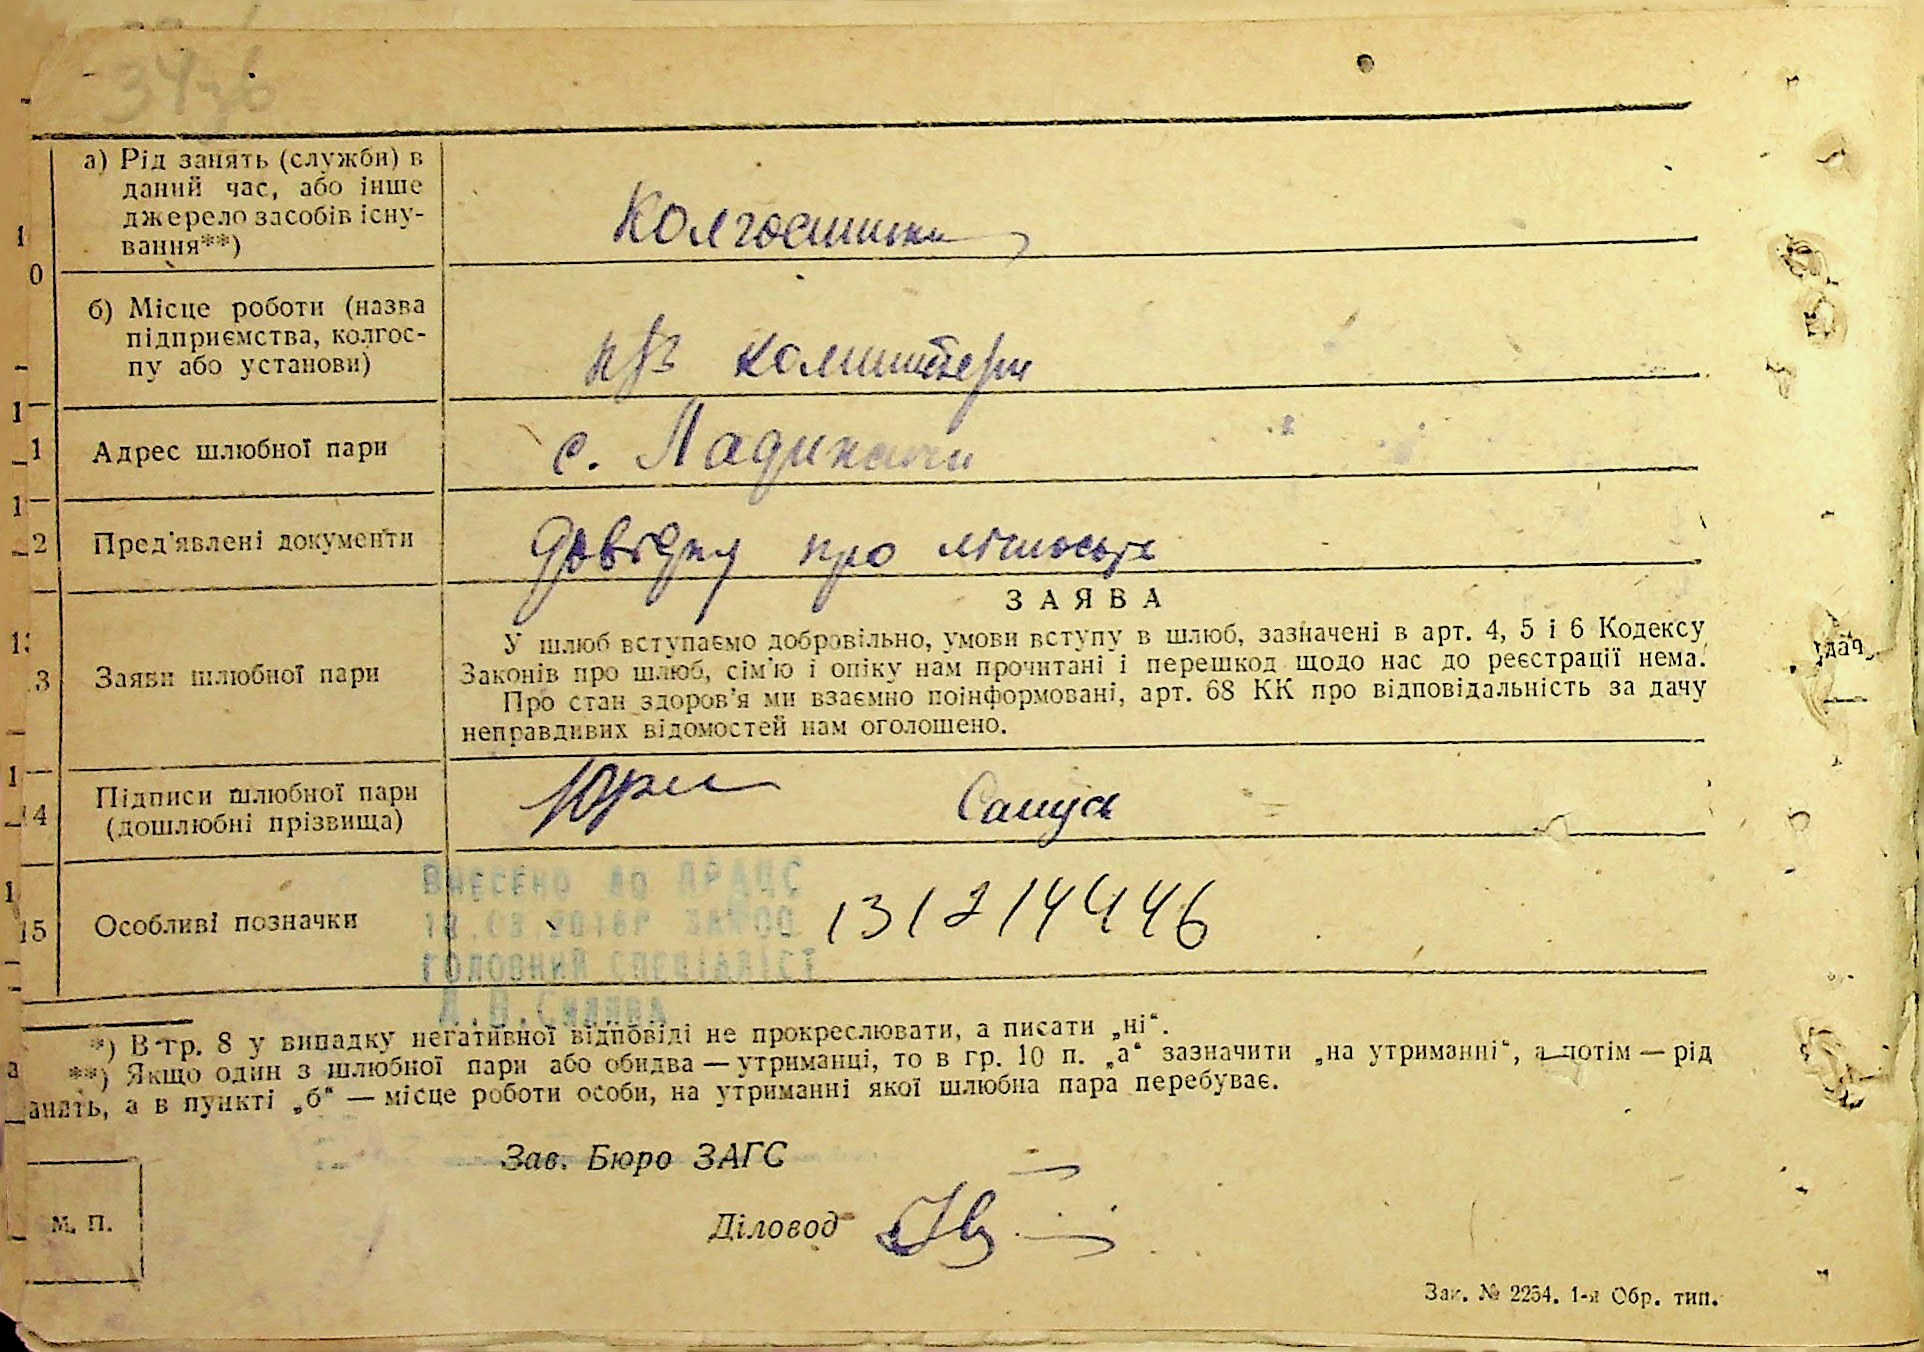 а) Рід занять (служби) в
даний час, або інше
джерело засобів існу-
вання**)
Колгоспники
1
0
б) Місце роботи (назва
підприємства, колгос-
пу або установи)
к/г Комінтерн
1
1
Адрес шлюбної пари
с. Ладижичи
1
2
Пред'явлені документи
довідку про
ЗАЯВА
1
3
Заяви шлюбної пари
У шлюб вступаємо добровільно, умови вступу в шлюб, зазначені в арт. 4, 5 і 6 Кодексу
Законів про шлюб, сім'ю і опіку нам прочитані і перешкод щодо нас до реєстрації нема.
Про стан здоров'я ми взаємно поінформовані, арт. 68 КК про відповідальність за дачу
неправдивих відомостей нам оголошено.
1
14
Підписи шлюбної пари
(дошлюбні прізвища)
Самусь
ВНЕСЕНО ДО ДРАЦС
1
15
Особливі позначки
131214446
ГОЛОВНИЙ СПЕЦІАЛІСТ
*) В гр. 8 у випадку негативної відповіді не прокреслювати, а писати „ні“.
**) Якщо один з шлюбної пари або обидва — утриманці, то в гр. 10 п. „а“ зазначити „на утриманні“, а потім — рід
анять, а в пункті „б“ — місце роботи особи, на утриманні якої шлюбна пара перебуває.
Зав. Бюро ЗАГС
м. п.
Діловод
Зак. № 2254. 1-я Обр. тип.